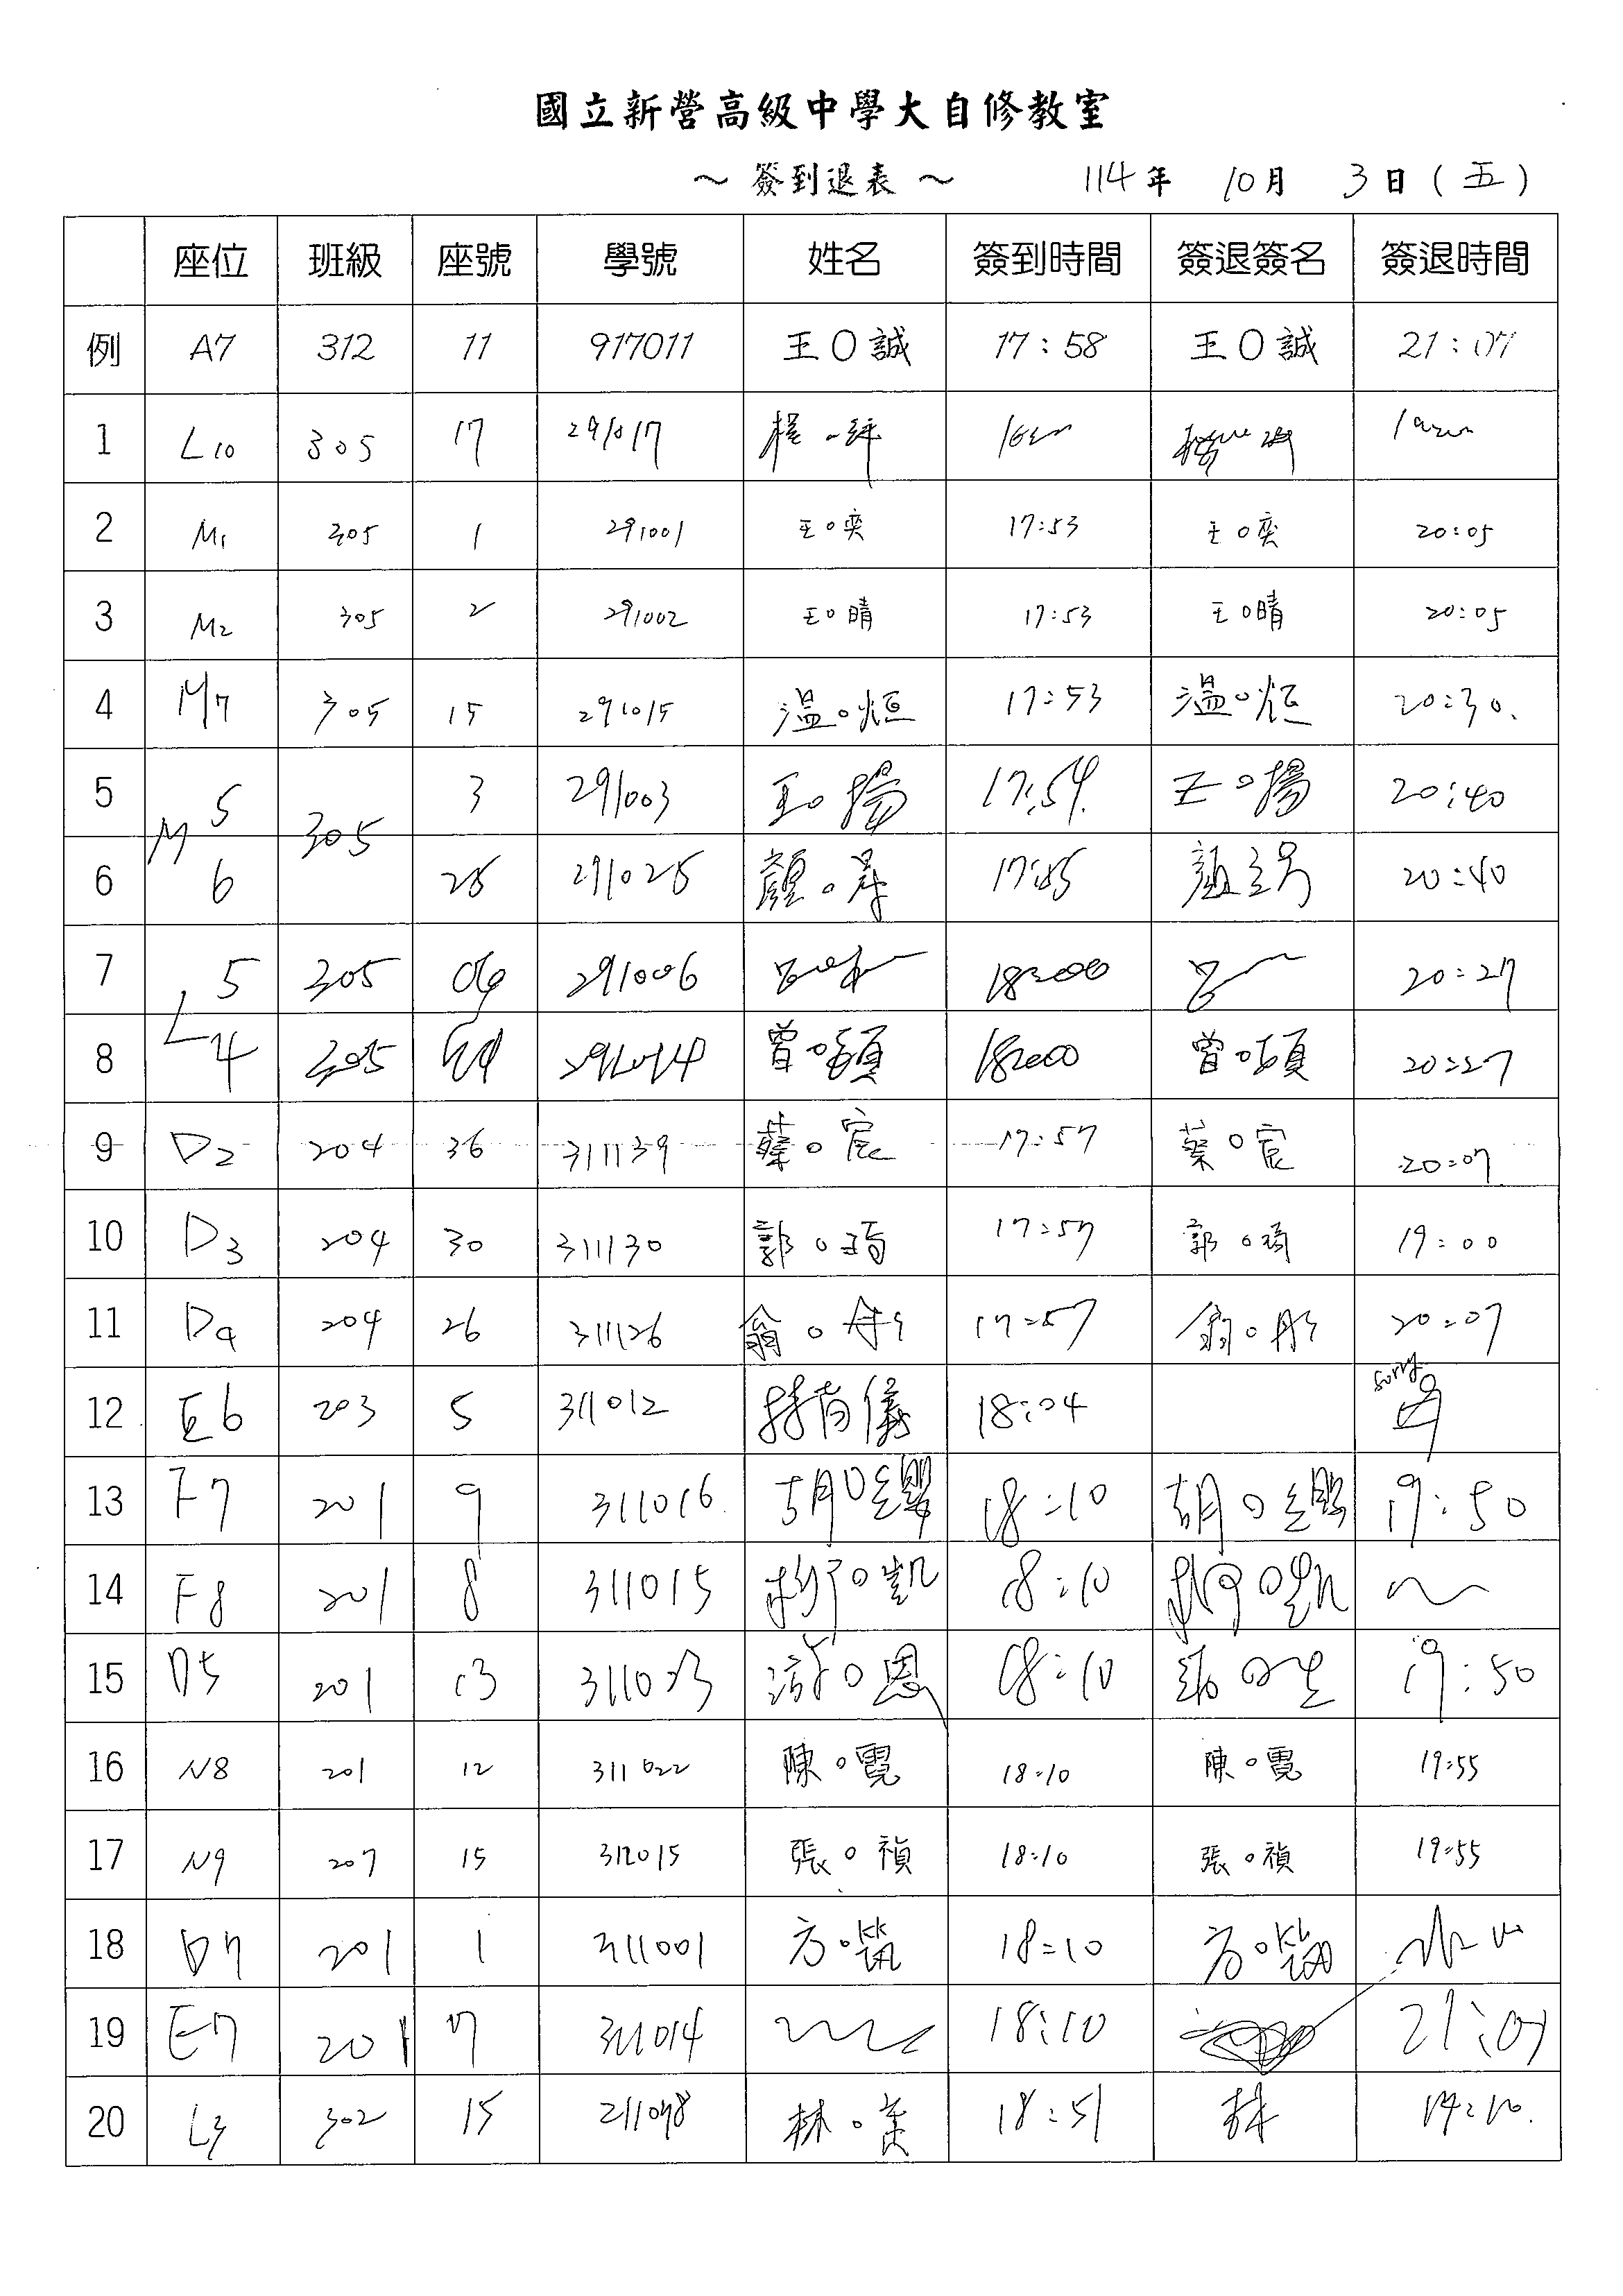 國立新營高級中學大自修教室
～ 簽到退表 ～ 114年 10月 3日(五)
座位 班級 座號 學號 姓名 簽到時間 簽退簽名 簽退時間
例 A7 312 11 917011 王O誠 17:58 王O誠 21:07
1 L10 305 17 291017
2 M1 305 1 291001 王O奕 17:53 王O奕 20:05
3 M2 305 2 291002 王O晴 17:53 王O晴 20:05
4 M7 305 15 291015 溫O烜 17:53 溫O烜 20:30.
5 M 5 305 3 291003 王O揚 17:54. 王O揚 20:40
6 6 顏 20:40
7 L 5 305 06 291006 20:27
8 4 305 曾O 曾O 20:27
9 D2 204 36 311139 蔡O宸 17:57 蔡O宸 20:07
10 D3 204 30 311130 郭O琦 17:57 郭O琦 19:00
11 D4 204 26 311126 翁O彤 17:57 翁O彤 20:07
12 E6 203 5 311012 18:04 sorry
13 F7 201 9 311016. 胡O 18:10 胡O 19:50
14 F8 201 8 311015 柳O凱 18:10 柳O凱
15 D5 201 13 游O恩 18:10 19:50
16 N8 201 12 311022 陳O霓 18:10 陳O霓 19:55
17 N9 207 15 312015 張O禎 18:10 張O禎 19:55
18 D7 201 1 311001 方O 18:10 方O
19 E7 201 7 311014 18:10 21:07
20 L3 302 15 林O 18:51 林